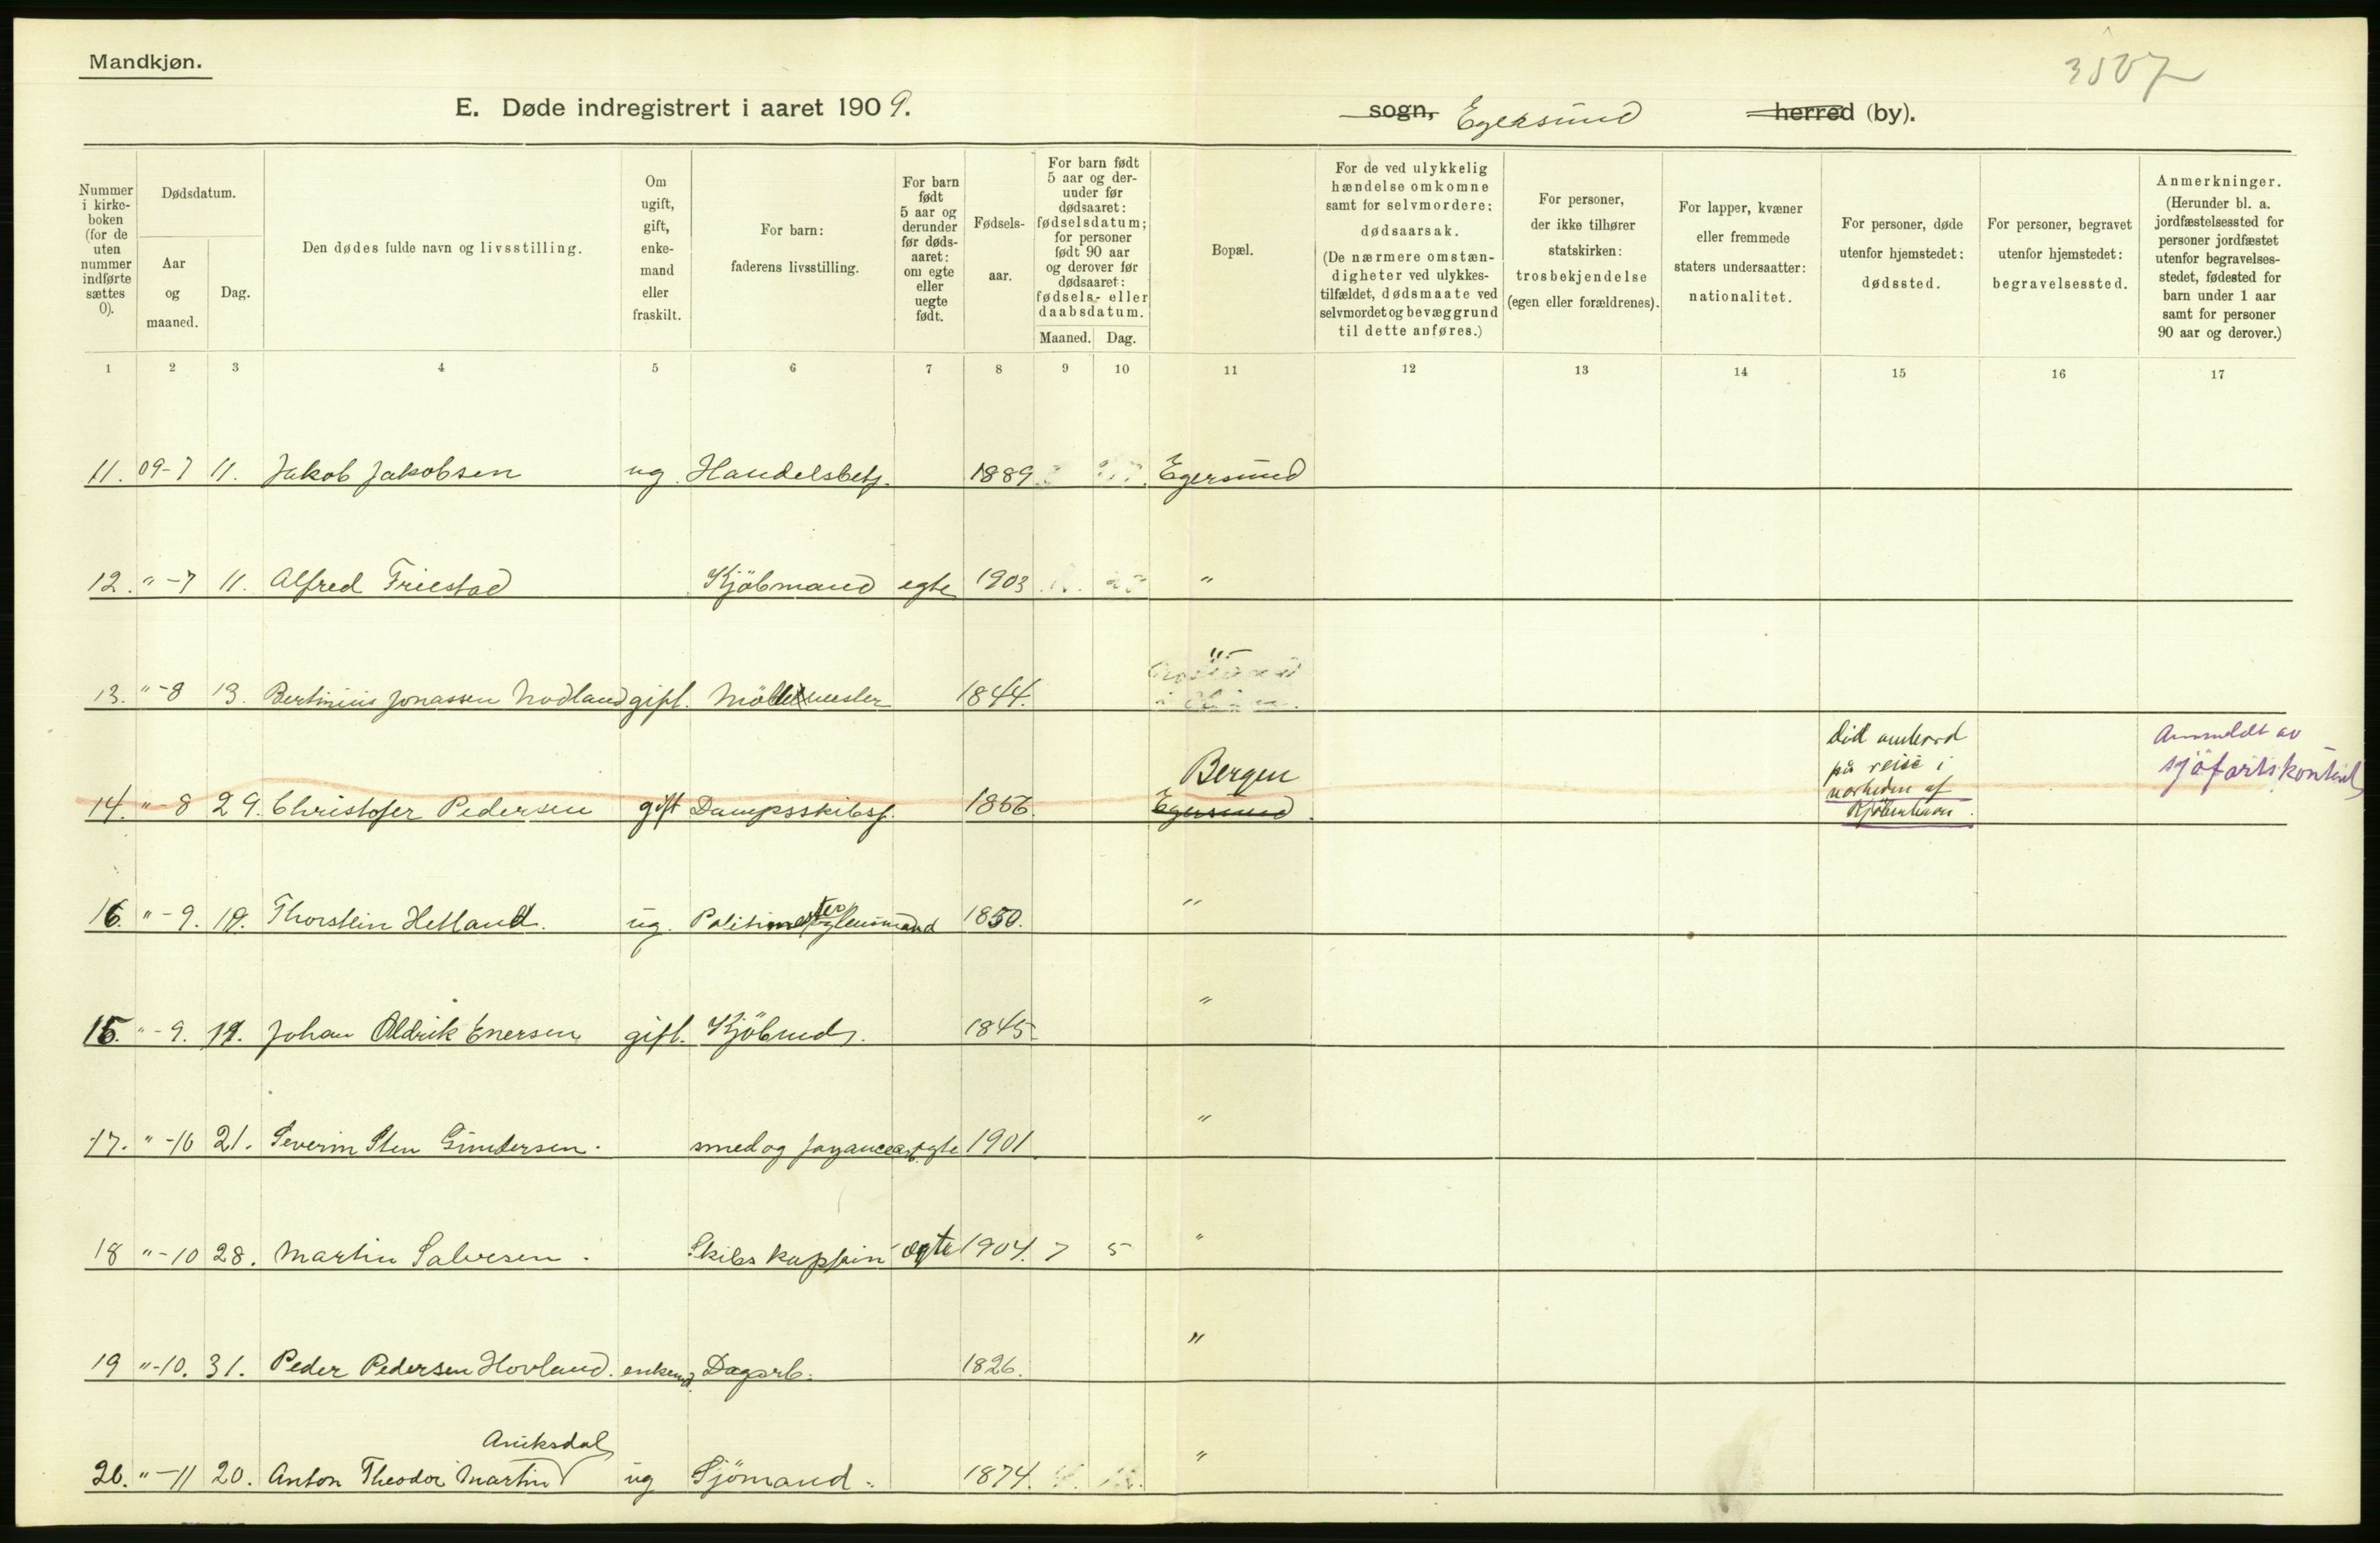 Mandkjøn.
3507
E. Døde indregistrert i aaret 1909.
sogn, Egersund herred (by).
Nummer i kirke-boken (for de uten nummer indførte sættes 0).
Dødsdatum.
Aar og maaned.
Dag.
Den dødes fulde navn og livsstilling.
Om ugift, gift, enke-mand eller fraskilt.
For barn: faderens livsstilling.
For barn født 5 aar og derunder før døds-aaret: om egte eller uegte født.
Fødsels-aar.
For barn født 5 aar og der-under før dødsaaret: fødselsdatum; for personer født 90 aar og derover før dødsaaret: fødsels- eller daabsdatum.
Maaned. Dag.
Bopæl.
For de ved ulykkelig hændelse omkomne samt for selvmordere: dødsaarsak. (De nærmere omstæn-digheter ved ulykkes-tilfældet, dødsmaate ved selvmordet og bevæggrund til dette anføres.)
For personer, der ikke tilhører statskirken: trosbekjendelse (egen eller forældrenes).
For lapper, kvæner eller fremmede staters undersaatter: nationalitet.
For personer, døde utenfor hjemstedet: dødssted.
For personer, begravet utenfor hjemstedet: begravelsessted.
Anmerkninger. (Herunder bl. a. jordfæstelsessted for personer jordfæstet utenfor begravelses-stedet, fødested for barn under 1 aar samt for personer 90 aar og derover.)
1 2 3 4 5 6 7 8 9 10 11 12 13 14 15 16 17
11. 09-7 11. Jakob Jakobsen ug. Handelsbetj. 1889 Egersund
12. "-7 11. Alfred Friestad Kjöbmand egte 1903 "
13. "-8 13. Bertinius Jonassen Nodland gift. Möllemester 1844. "
14. "-8 29. Christofer Pedersen gift Dampsskibsf. 1856. Bergen Egersund
Död ombord
på reise i
nærheden af
Kjöbenhavn.
Anmeldt av
sjöfartskontoret
16. "-9. 19. Thorstein Hetland. ug. Politimester og lensmand 1850. "
15. "-9. 11. Johan Aldrik Enersen gift. Kjöbmd. 1845 "
17. "-10 21. Severin Sten Gundersen. smed og fayancearb. egte 1901. "
18 "-10 28. Martin Salvesen. Skibskaptein ægte 1904. 7 5 "
19 "-10. 31. Peder Pedersen Hovland. enkemd. Dagarb. 1826. "
Aniksdal
20. "-11 20. Anton Theodor Martin ug Sjömand. 1874. "